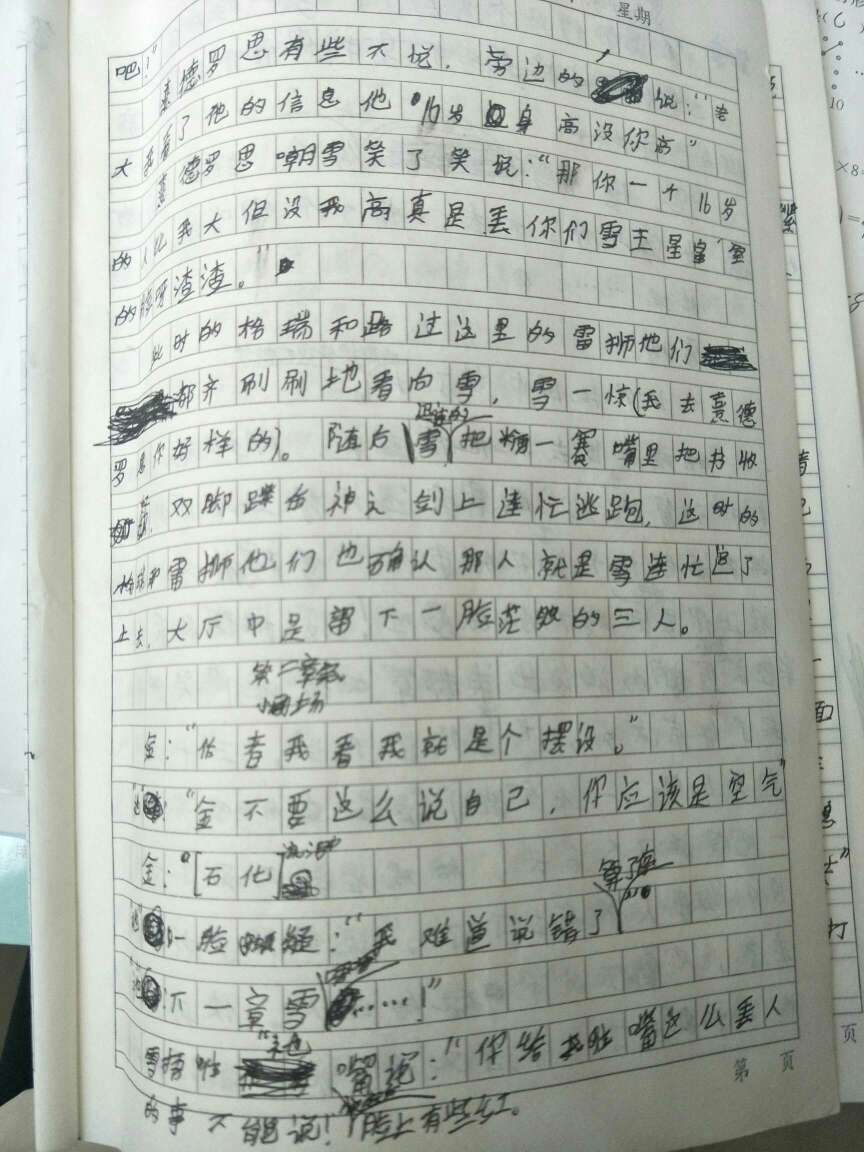 星期
吧！”
嘉德罗思有些大悦，旁边的说：“老
大我看了他的信息他16岁身高没你高”
嘉德罗思嘲雪笑了笑说：“那你一个16岁
的人比我大但没我高真是丢你们雪王星皇室
的脸呀渣渣。”
此时的格瑞和路过这里的雷狮他们
都齐刷刷地看向雪，雪一惊（我去嘉德
罗思你好样的）。随后雪把糖一塞嘴里把书收
双脚踩在神之剑上连忙逃跑，这时的
格瑞和雷狮他们也确认那人就是雪连忙追了
上去，大厅中是留下一脸茫然的三人。
第二章
小剧场
金：“作者我看我就是个摆设。”
“金不要这么说自己，你应该是空气”
金：“[石化]
一脸疑：“我难道说错了
下一章雪……！”
雪捂嘴说：“你给我闭嘴这么丢人
的事不能说！脸上有些红。
第 页
10
×8
面
打
页